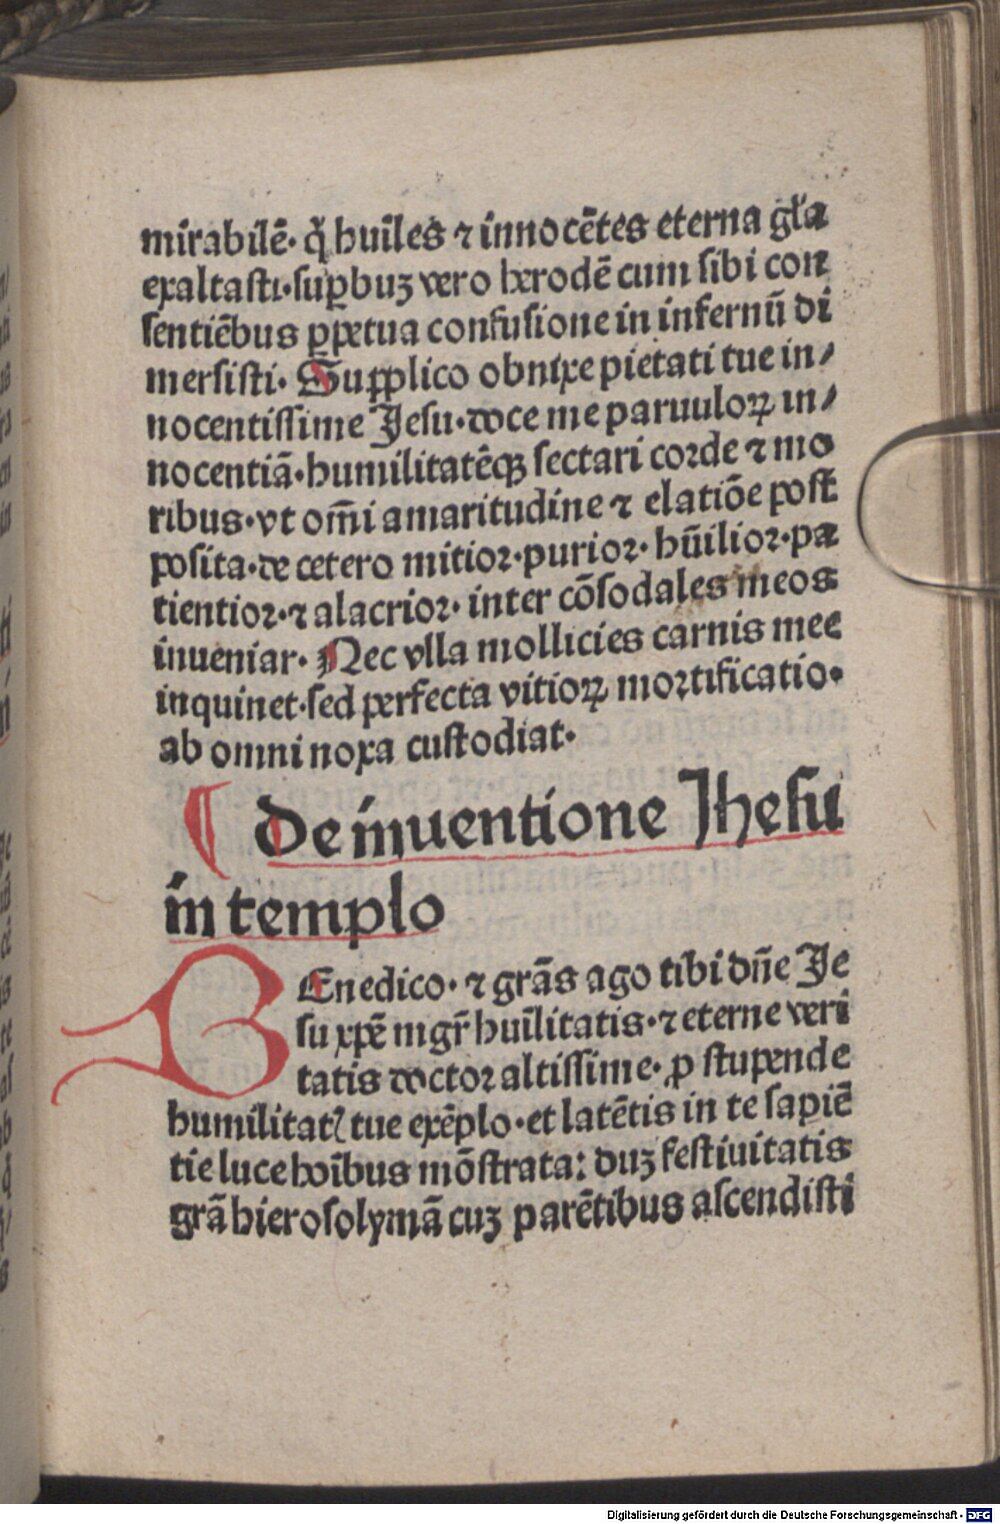 mirabilē· q̄ huīles ⁊ innocētes eterna gl̄a
exaltasti·suꝑbuꝫ vero herodē cum sibi con
sentiēbus ꝑpetua confusione in infernū di
mersisti· Supplico obnixe pietati tue in⸗
nocentissime Jesu·doce me paruuloꝝ in⸗
nocentiā·humilitatēqꝫ sectari corde ⁊ mo
ribus·vt om̄i amaritudine ⁊ elatiōe post
posita·de cetero mitior·purior·hūilior·pa
tientior·⁊ alacrior· inter cōsodales meos
inueniar· Nec vlla mollicies carnis mee
inquinet·sed perfecta vitioꝝ mortificatio·
ab omni noxa custodiat·
¶ De inuentione Jhesu
in templo
BEnedico· ⁊ grās ago tibi dn̄e Je
su xp̄e mgr̄ huīlitatis·⁊ eterne veri
tatis doctor altissime· ꝓ stupende
humilitatꝭ tue exēplo·et latētis in te sapiē
tie luce hoībus mōstrata: duꝫ festiuitatis
grā hierosolymā cuꝫ parētibus ascendisti
Digitalisierung gefördert durch die Deutsche Forschungsgemeinschaft - DFG